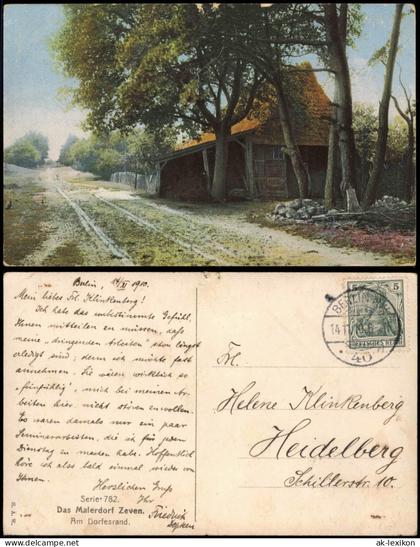 Berlin, 14/XI 1910.
Mein liebes Frl. Klinkenberg!
Ich habe das unbestimmte Gefühl,
Ihnen mitteilen zu müssen, daß
meine „dringenden Arbeiten" schon längst
erledigt sind; denn ich möchte fast
annehmen, Sie wären wirklich so
, mich bei meinen Ar-
beiten hier nicht stören zu wollen.
Es waren damals nur ein paar
Seminararbeiten, die ich für jeden
Dienstag zu machen habe. Hoffentlich
höre ich also bald einmal wieder von
Ihnen.
Herzlichen Gruß
Ihr
Friedrich
Serie 782.
Das Malerdorf Zeven.
Am Dorfesrand.
Frl.
Helene Klinkenberg
Heidelberg
Schillerstr. 10.
5
BERLIN
14.11.10
40
ak-lexikon
© ak-lexikon.de